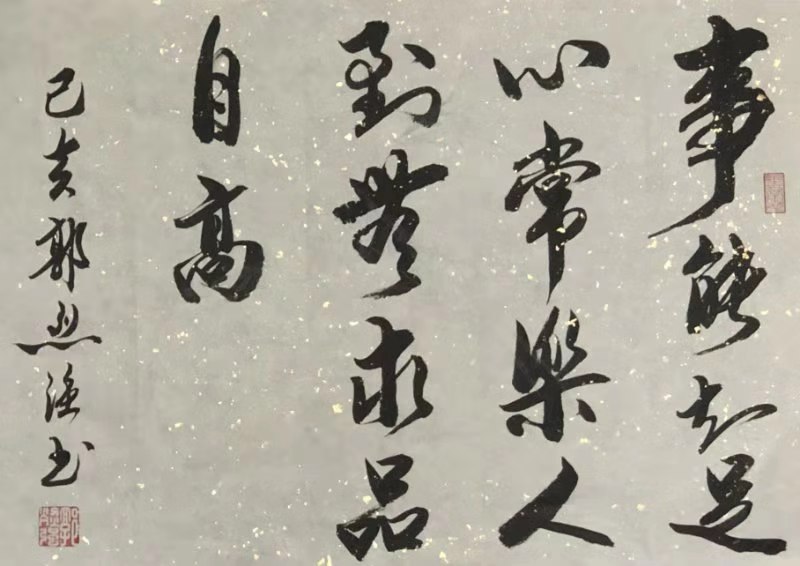 事能知足
心常樂人
到無求品
自高
己亥郭烈強书